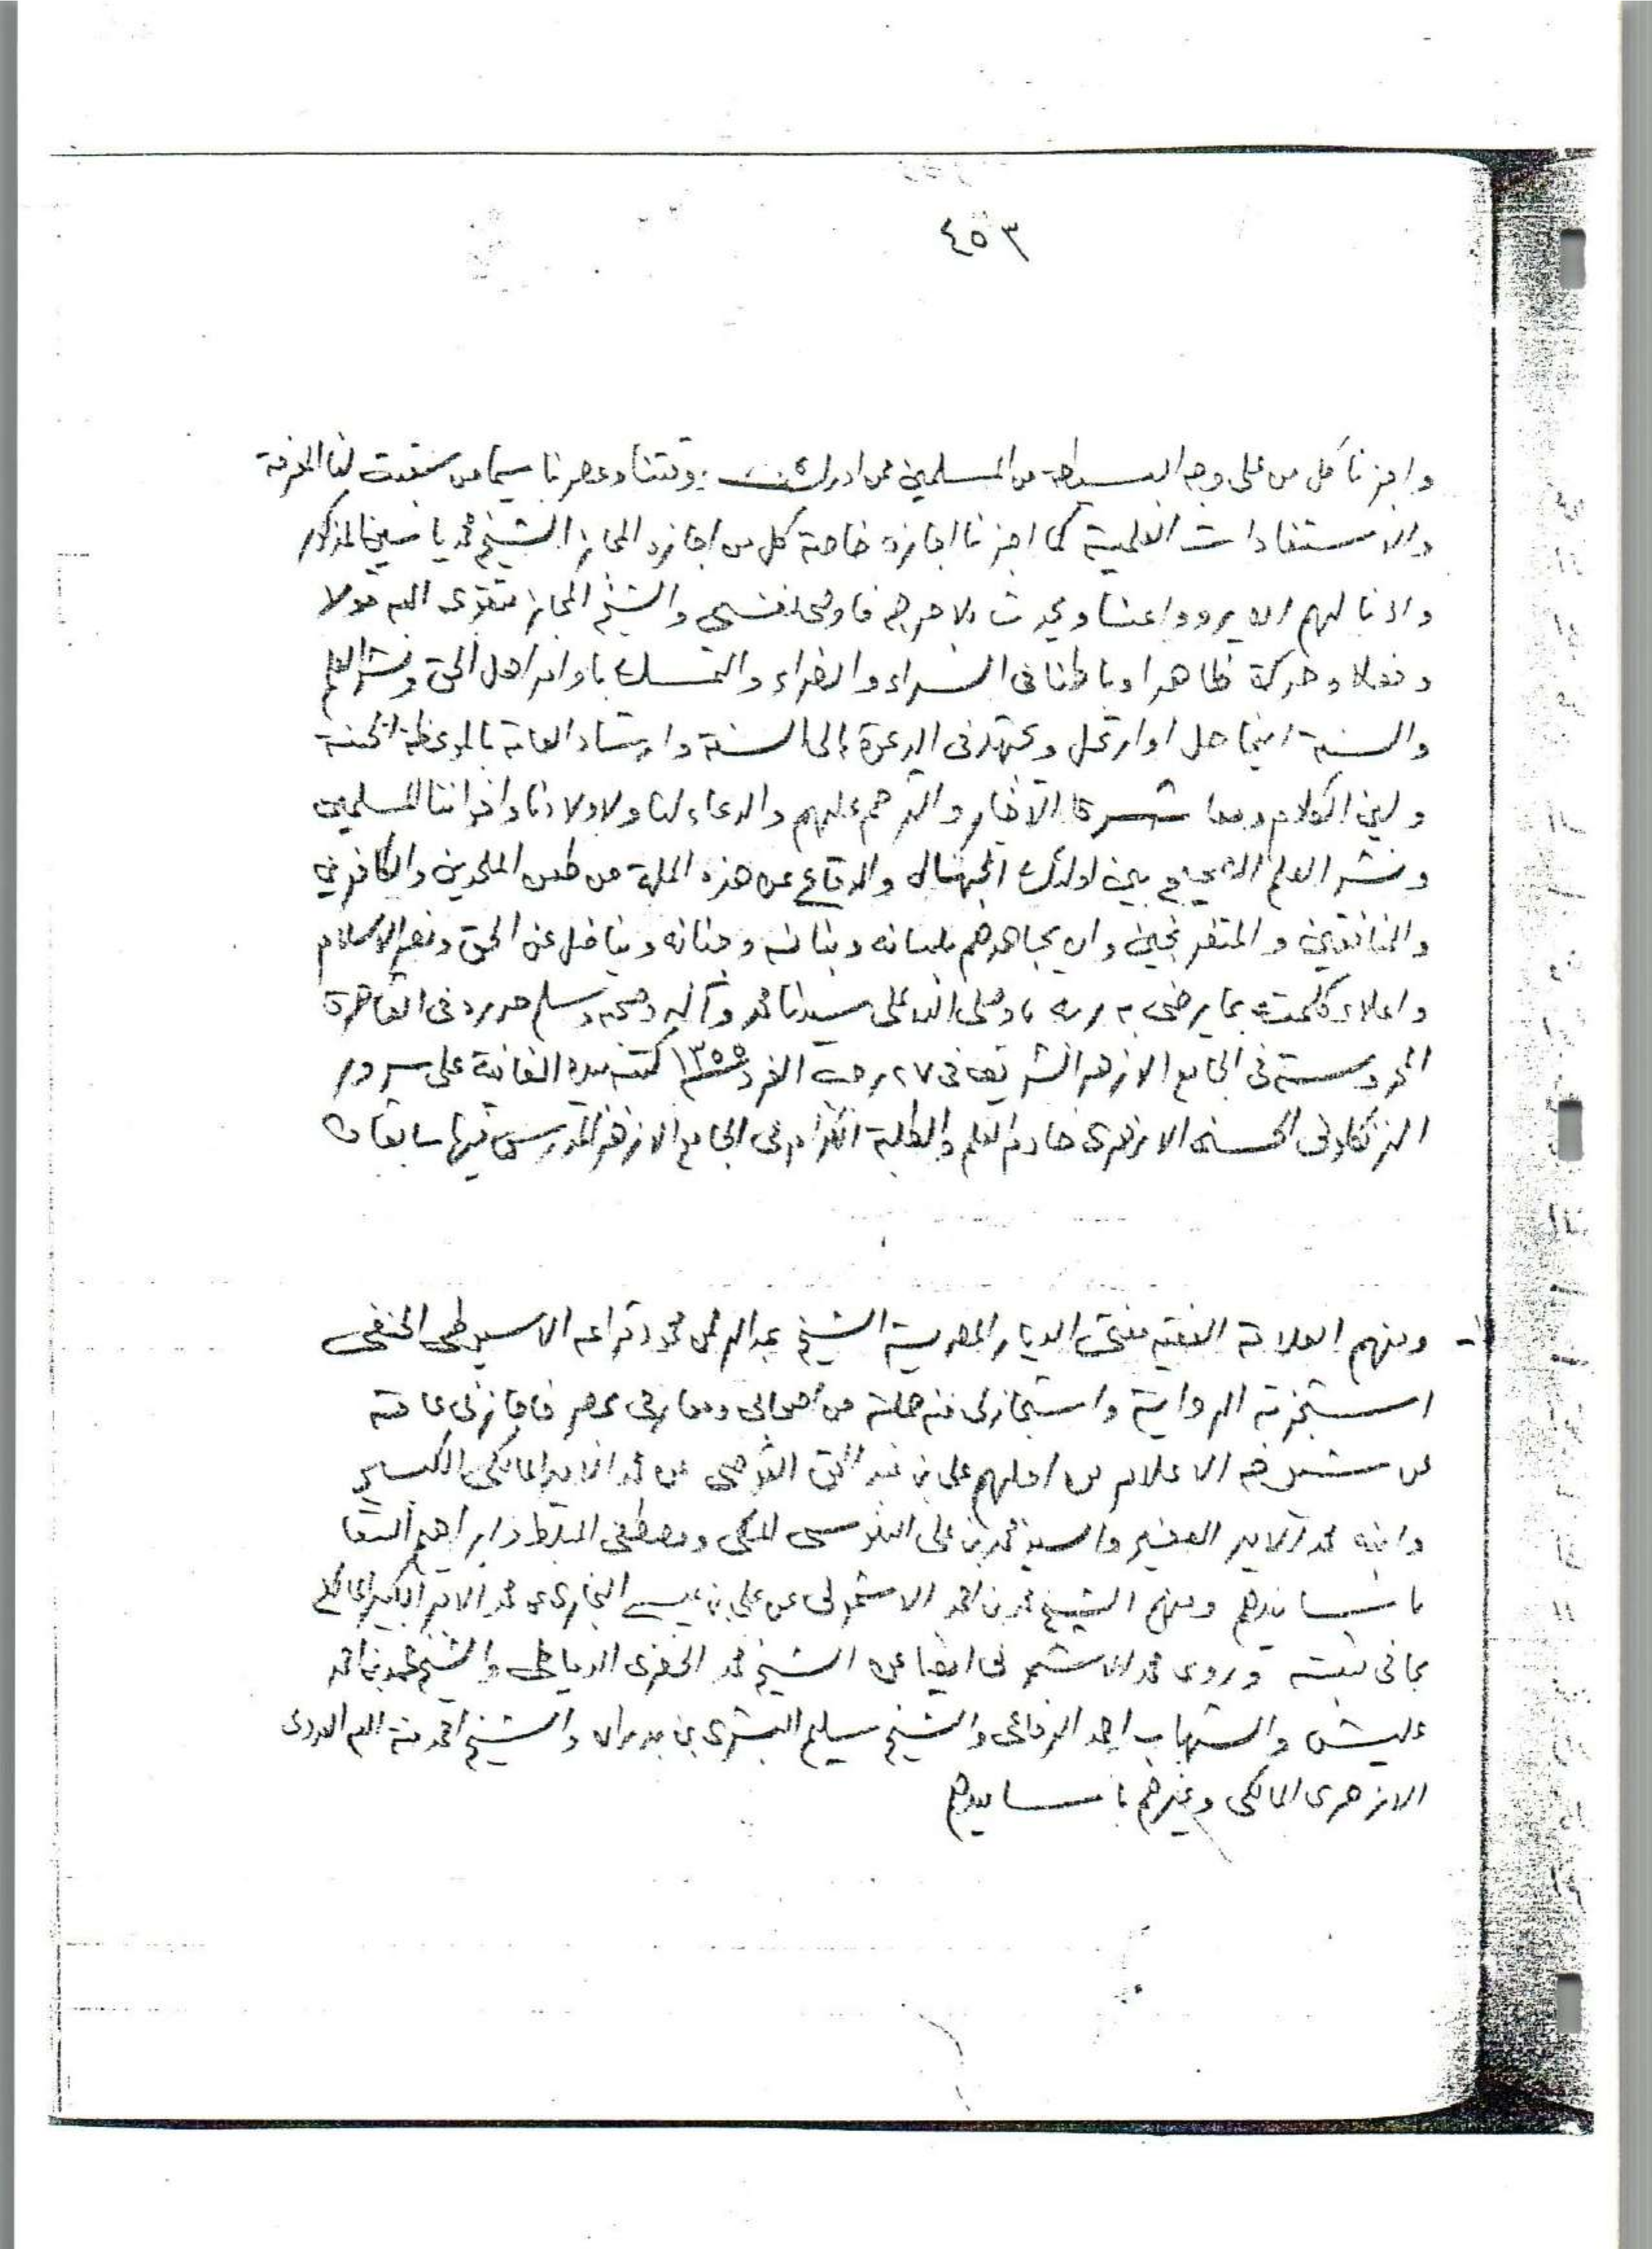 ٤٥٣
واجزنا كل من على وجه البسيطة من المسلمين ممن ادرك وقتنا وعصرنا سيما من سبقت لنا المعرفة
والاستفادات العلمية كما اجزنا اجازة خاصة كل من اجازه المجاز الشيخ محمد ياسين المذكور
واذنا لهم ان يرووا عنا ويحدث بلا حرج فاوصى نفسي والشيخ المجاز بتقوى الله قولا
وفعلا وحركة ظاهرا وباطنا في السراء والضراء والتمسك باوامر اهل الحق ونشر العلم
والسنة اينما حل او ارتحل ويجتهد في الدعوة الى السنة وارشاد العامة بالموعظة الحسنة
ولين الكلام ومعاشرة الاخيار والترحم عليهم والدعاء لنا ولاولادنا واخواننا المسلمين
ونشر العلم الصحيح بين اولئك الجهال والدفاع عن هذه الملة من طعن الملحدين والكافرين
والمنافقين والمتفرنجين وان يجاهدهم بلسانه وبنانه وجنانه ويناضل عن الحق ونصر الاسلام
واعلاء كلمته بما يرضى به ربه وصلى الله على سيدنا محمد وآله وصحبه وسلم حرر في القاهرة
المحروسة في الجامع الازهر الشريف في ٢٧ رجب الفرد ١٣٥٥ كتبه بيده الفانية على سرور
الزنكلوني الحسنى الازهرى خادم العلم والطلبة الكرام في الجامع الازهر المدرس فيها سابقا
ومنهم العلامة الفقيه مفتى الديار المصرية الشيخ عبد الرحمن محمود قراعه الاسيوطى الحنفى
استجزته الرواية واستجاز لى منه جملة من اصحابى ومعارفى بمصر فاجازنى عامة
عن شيوخه الاعلام من اجلهم على بن عبد الحق القوصى عن محمد الامير المالكى الكبير
وابنه محمد الامير الصغير والسيد محمد بن على السنوسى المكى ومصطفى المبلط وابراهيم السقا
باسانيدهم ومنهم الشيخ محمد بن احمد الاشمونى عن على بن عيسى النجارى عن محمد الامير الكبير المالكى
بما في ثبته وروى محمد الاشمونى ايضا عن الشيخ محمد الخضرى الدمياطى والشيخ محمد بن احمد
عليش والشهاب احمد الرفاعى والشيخ سليم البشرى بن والشيخ احمد منة الله العدوى
الازهرى المالكى وغيرهم باسانيدهم